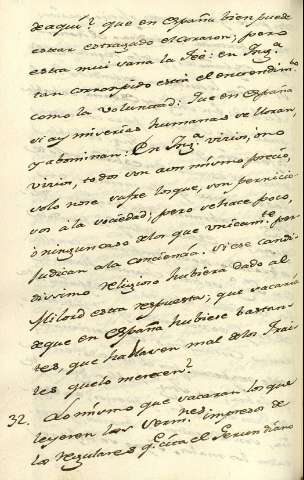 de aquí? que en España bien puede
estar estragado el corazon; pero
esta mui sana la Feé: en Ing.ª
tan corrompido está el entendim.to
como la voluntad: que en España
si ay miserias humanas se lloran,
y abominan: En Ing.ª vicios, ó no
vicios, todos son a un mismo precio,
solo no se sufre los que son pernicio-
sos a la sociedad; pero se hace poco,
ó ningun caso de los que unicam.te per-
judican a la conciencia. Si ese candi-
dissimo religioso hubiera dado al
Milord esta respuesta; que sacaria
de que en España hubiese bastan-
tes, que hablasen mal de los Frai-
les que lo merecen?
32. Lo mismo que sacaran los que
leyeren los Serm.nes impresos de
los regulares q.e cita el Gerundiano